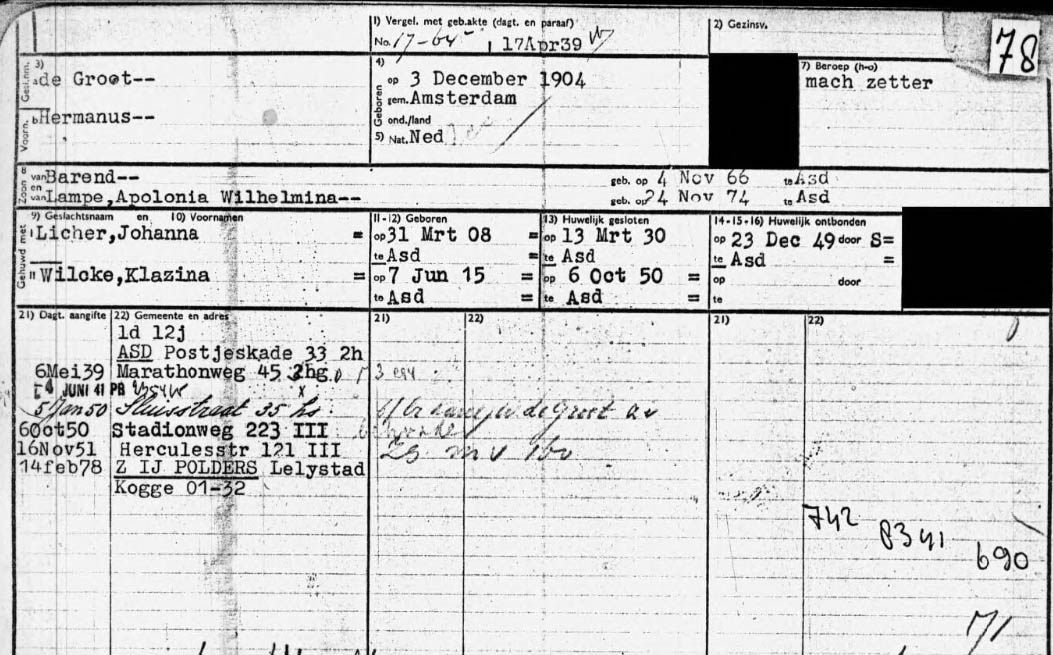 1) Vergel. met geb.akte (dagt. en paraaf)
No. 17-64 17Apr39
2) Gezinsv.
78
Gesl.nm. 3) a de Groot--
Voorn. b Hermanus--
4) Geboren op 3 December 1904
gem. Amsterdam
ond./land
5) Nat. Ned
7) Beroep (h-o)
mach zetter
8 Zoon van Barend-- geb. op 4 Nov 66 te Asd
en van Lampe,Apolonia Wilhelmina-- geb. op 24 Nov 74 te Asd
Gehuwd met 9) Geslachtsnaam en 10) Voornamen 11-12) Geboren 13) Huwelijk gesloten 14-15-16) Huwelijk ontbonden
I Licher,Johanna = op 31 Mrt 08 = op 13 Mrt 30 op 23 Dec 49 door S=
te Asd = te Asd te Asd =
II Wilcke,Klazina = op 7 Jun 15 = op 6 Oct 50 = op door
te Asd = te Asd = te
21) Dagt. aangifte 22) Gemeente en adres 21) 22) 21) 22)
ld 12j
ASD Postjeskade 33 2h
6Mei39 Marathonweg 45 2hg
4 JUNI 41 PB x
5 Jan 50 Sluisstraat 35 hs.
6Oct50 Stadionweg 223 III
16Nov51 Herculesstr 121 III
14feb78 Z IJ POLDERS Lelystad
Kogge 01-32
742
8341
690
71